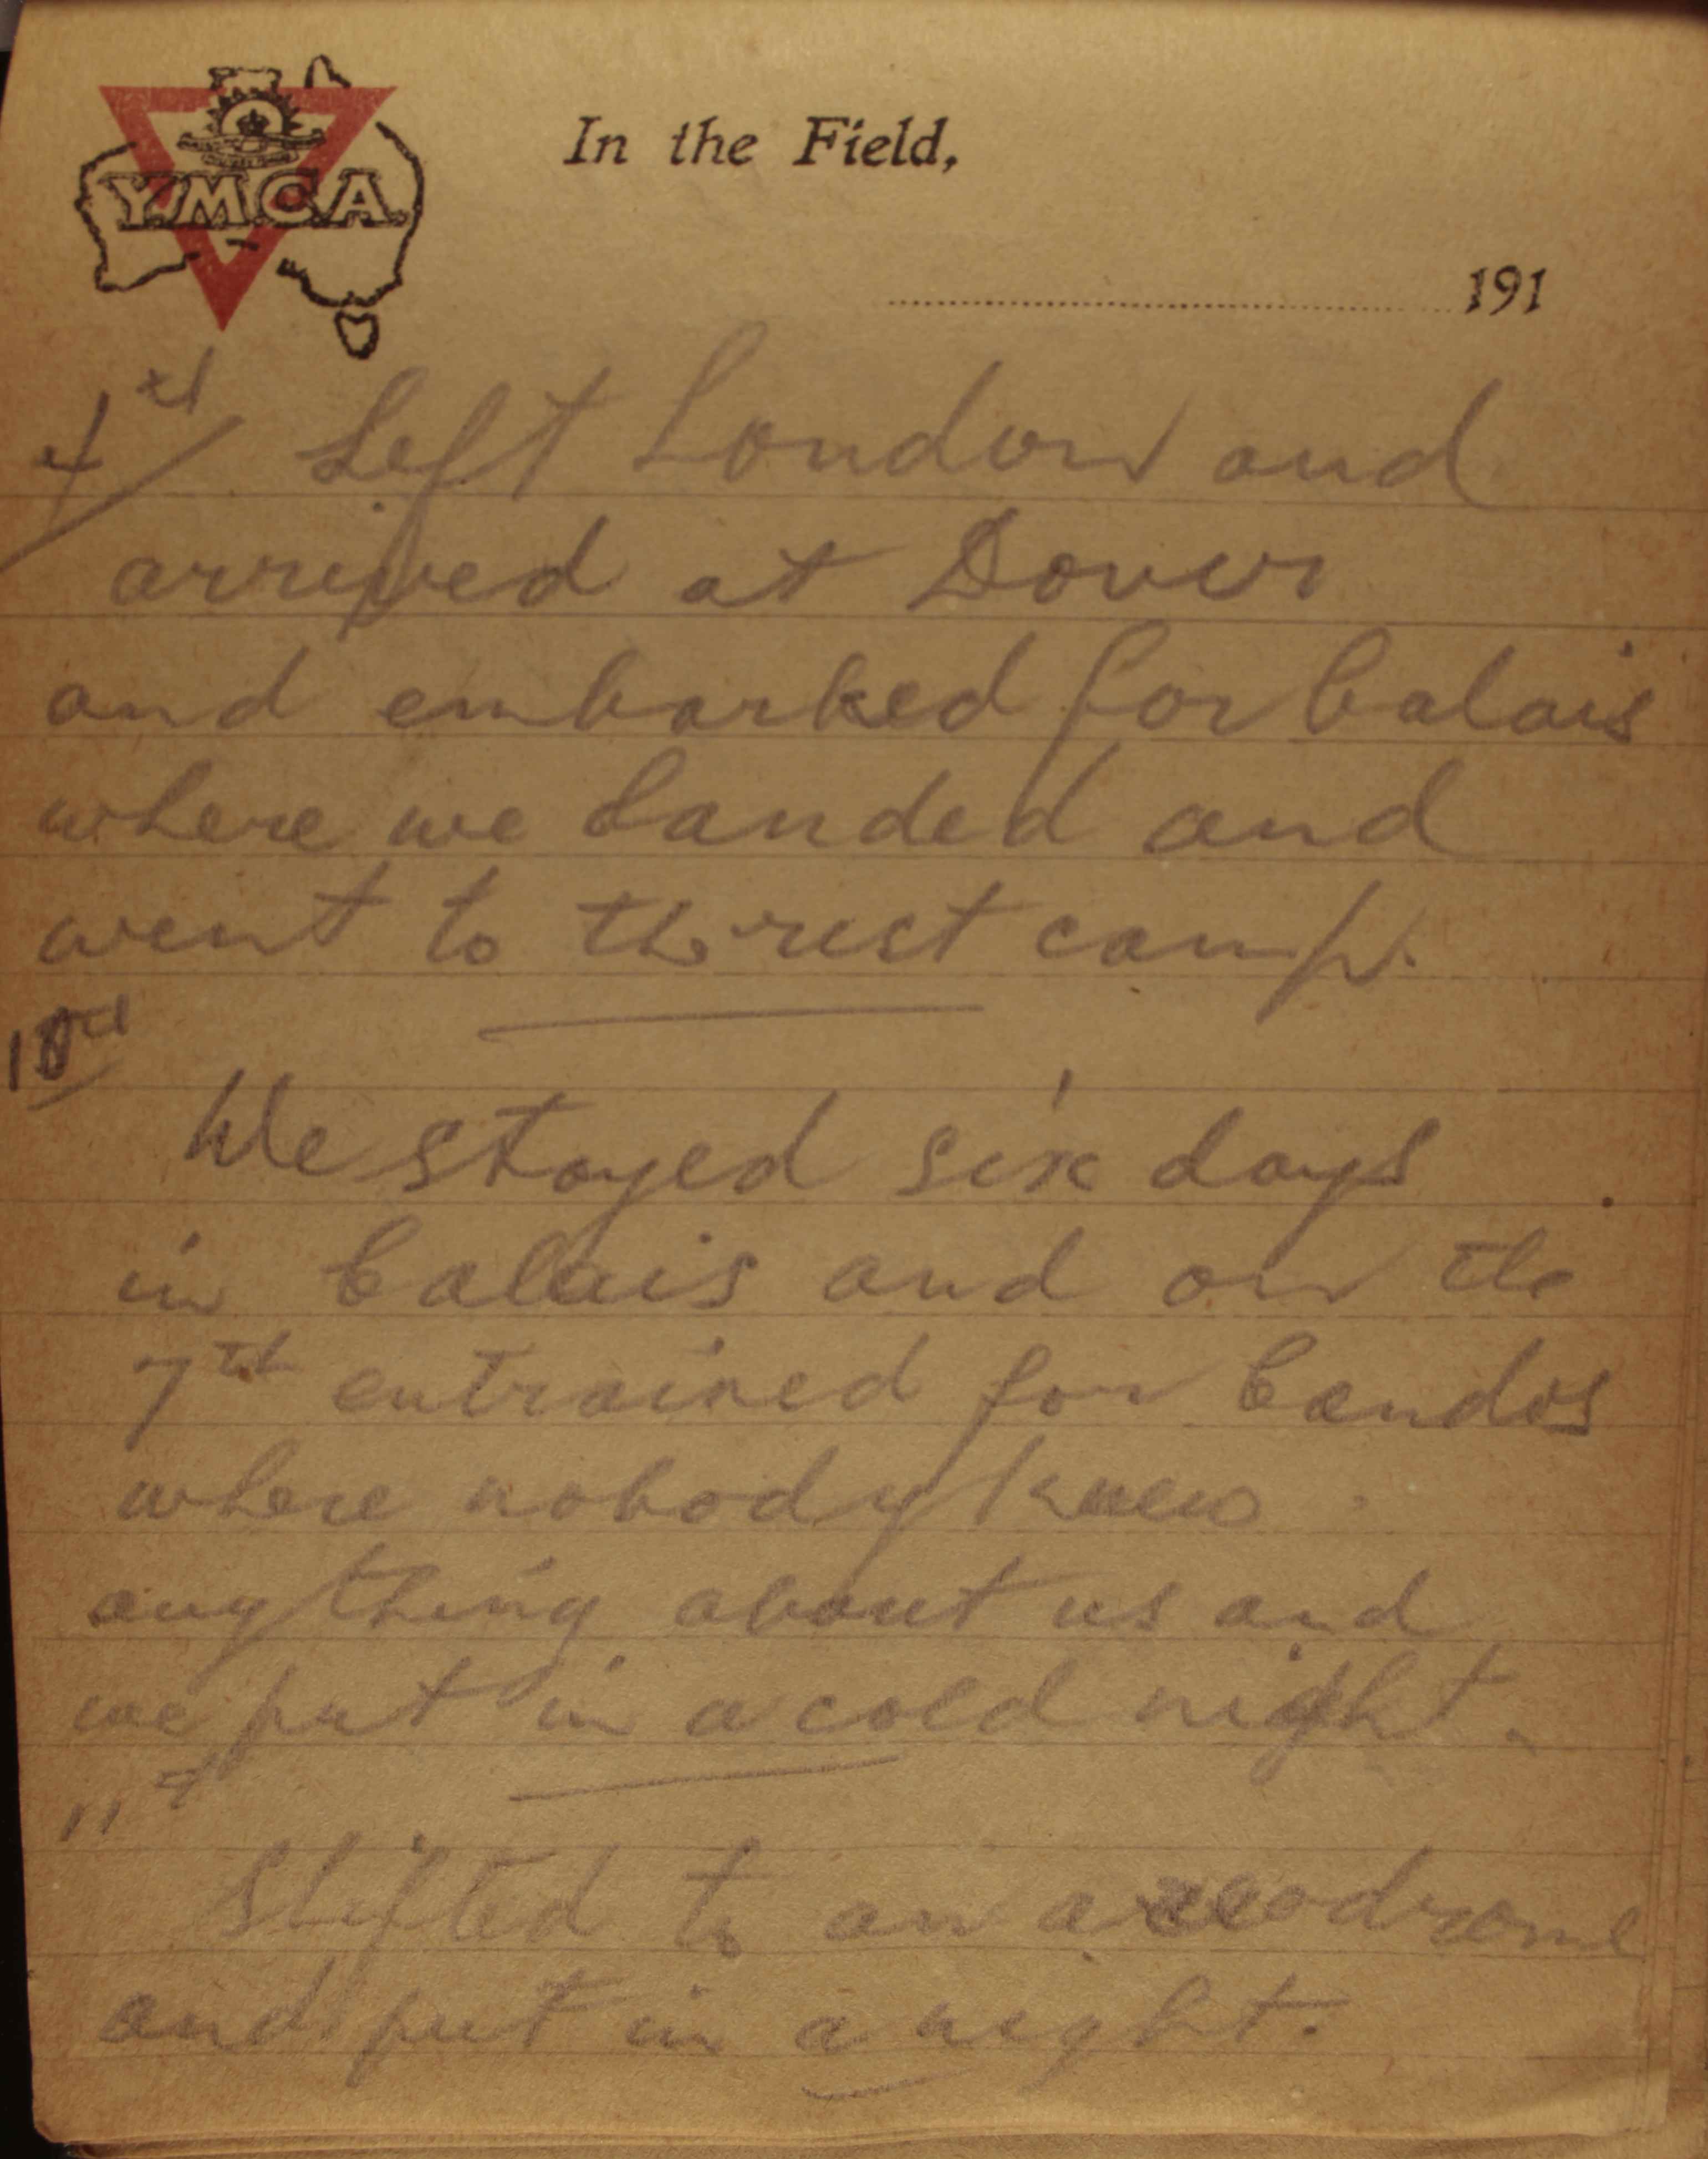 YMCA
In the Field,
191
4th Left London and
arrived at Dover
and embarked for Calais
where we landed and
went to the rest camp.
10th
We stayed six days
in Calais and on the
7th entrained for Candos
where nobody knew
anything about us and
we put in a cold night.
11th
Shifted to an areodrome
and put in a night.